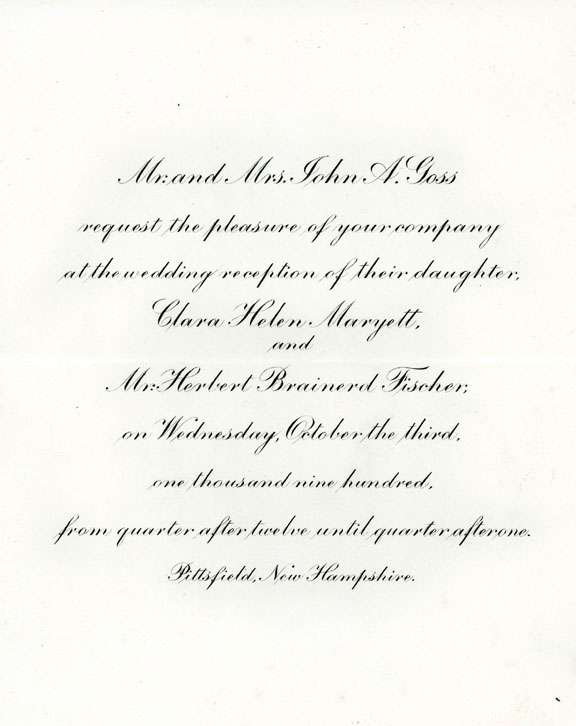 Mr. and Mrs. John A. Goss
request the pleasure of your company
at the wedding reception of their daughter,
Clara Helen Maryett,
and
Mr. Herbert Brainerd Fischer,
on Wednesday, October the third,
one thousand nine hundred,
from quarter after twelve until quarter after one.
Pittsfield, New Hampshire.